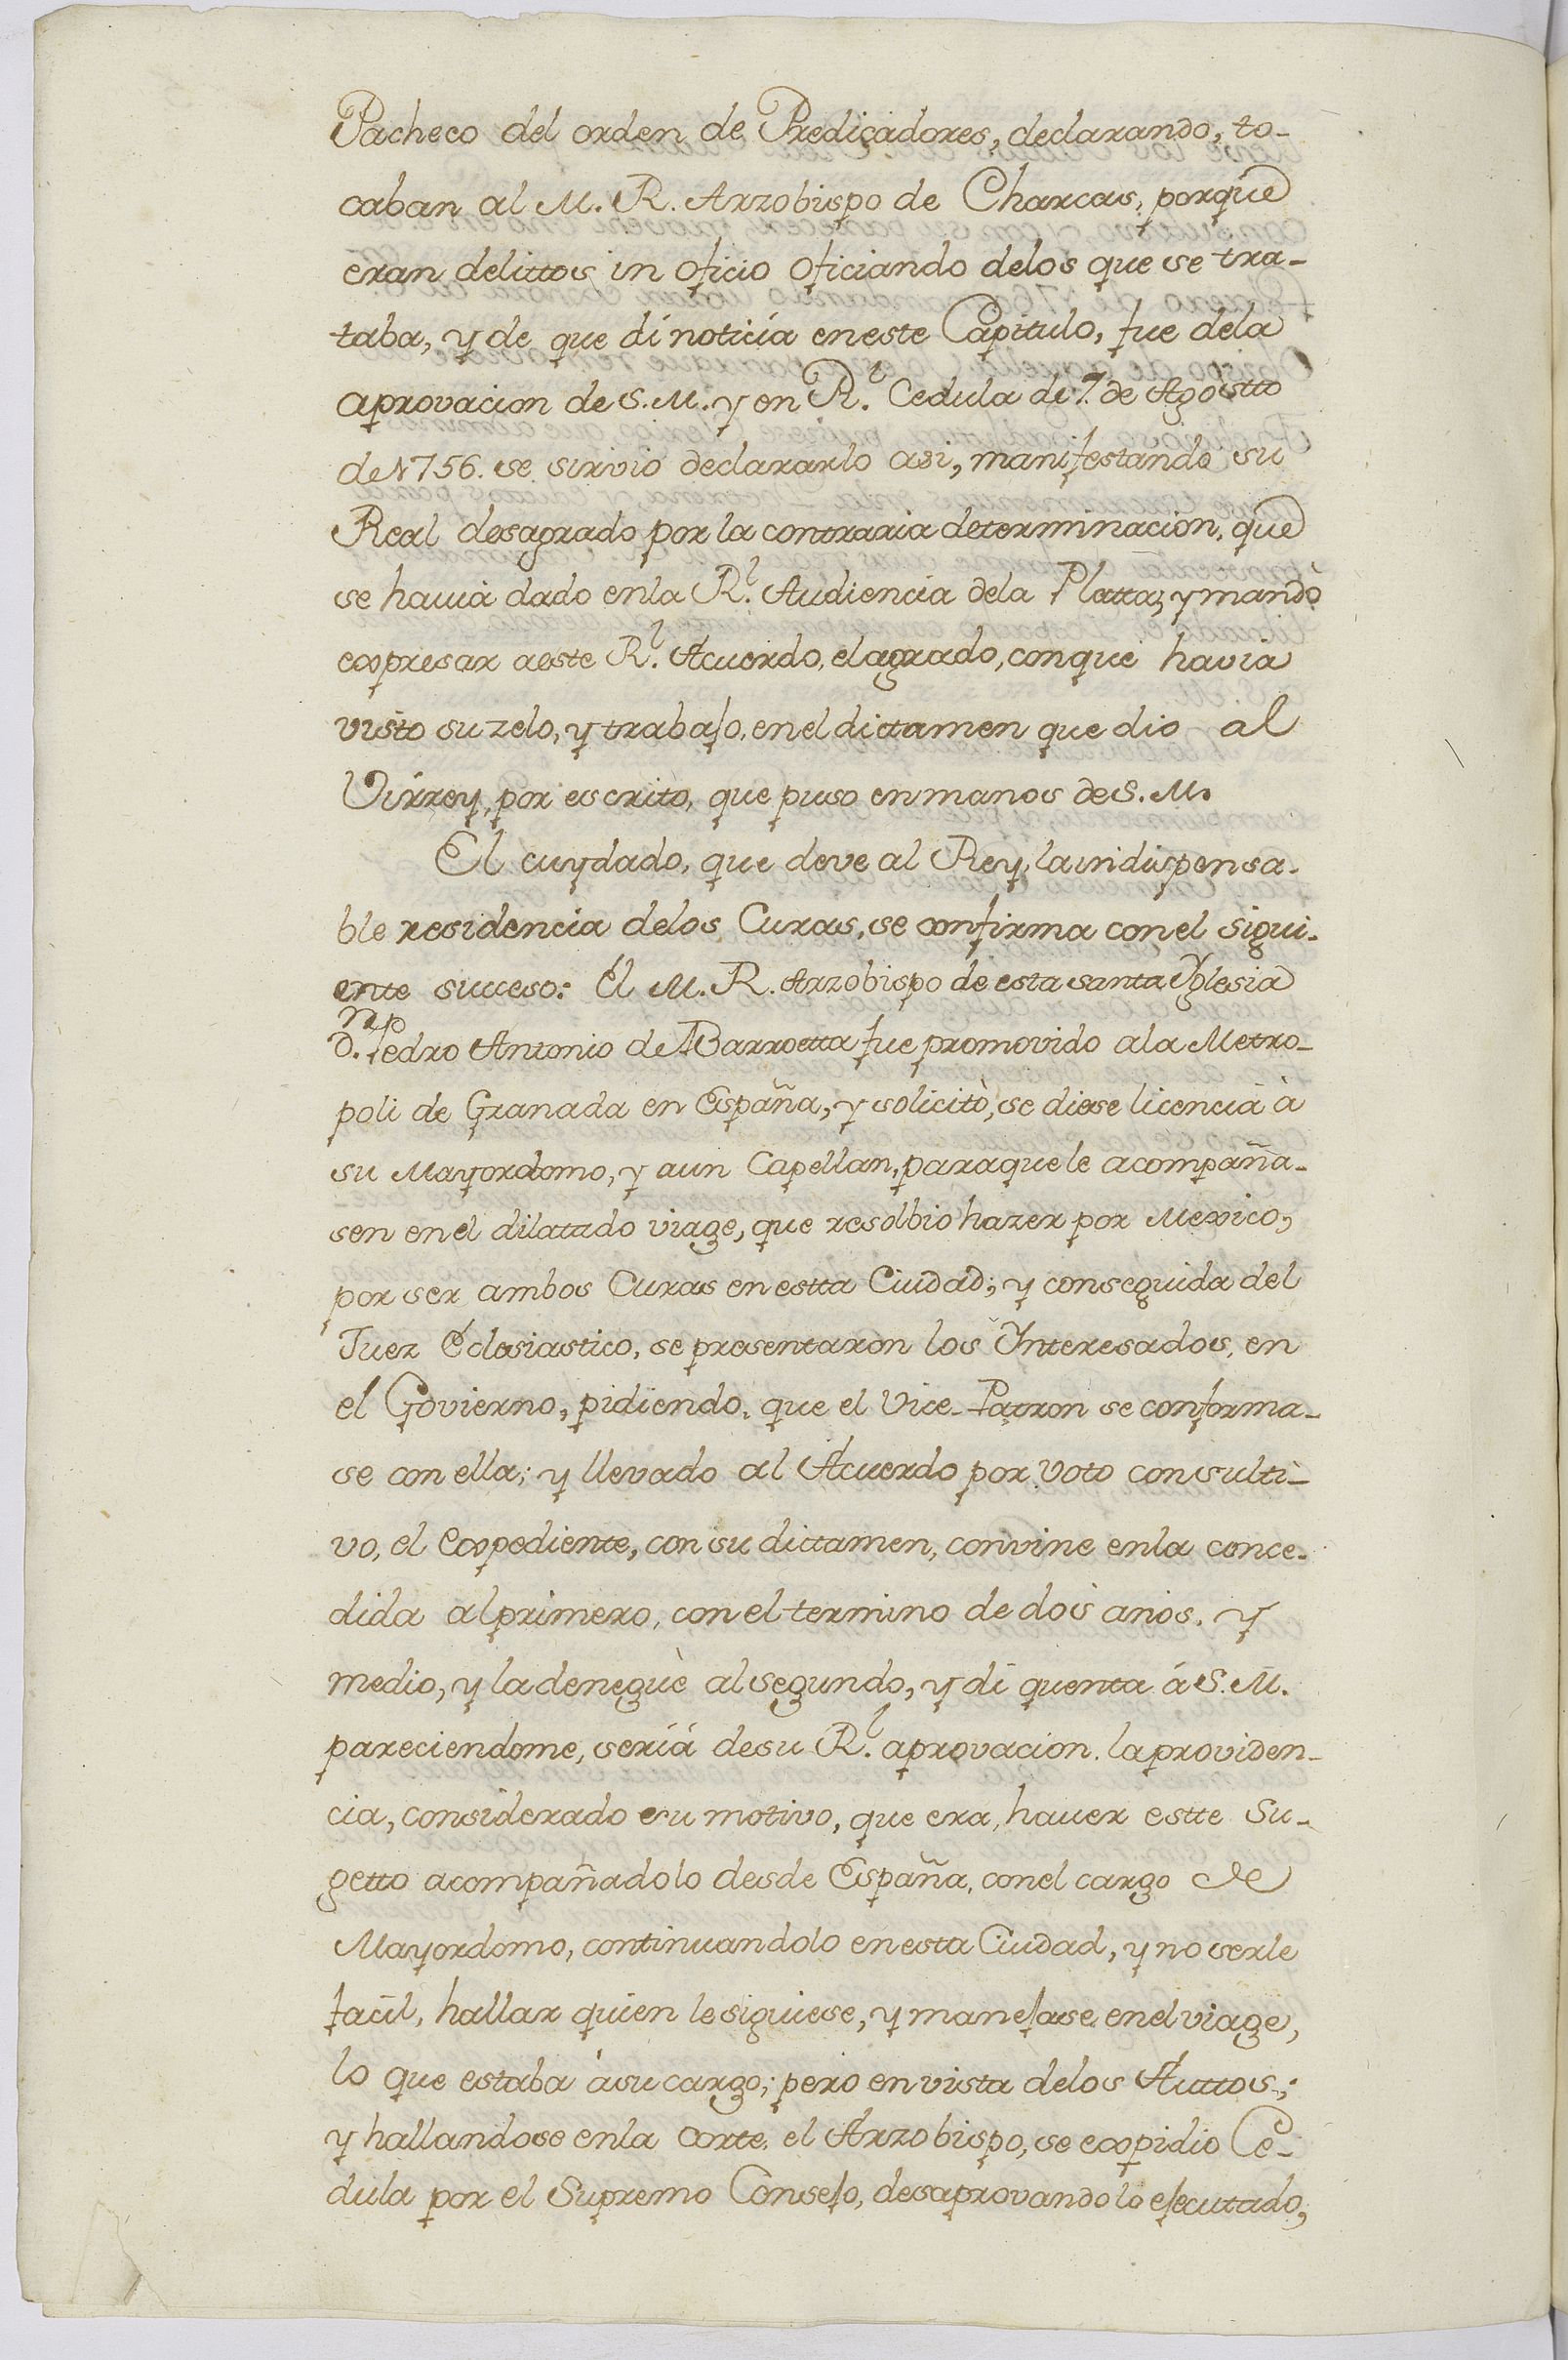 Pacheco del orden de Predicadores, declarando, to-
caban al M. R. Arzobispo de Charcas, porque
eran delittos in oficio oficiando delos que se tra-
taba, y de que dí noticia en este Capitulo, fue dela
aprovacion de S. M. y en R.l Cedula de 7. de Agostto
de 1756. se sirvio declararlo asi, manifestando su
Real desagrado por la contraria determinacion, que
se hauia dado enla R.l Audiencia dela Platta, y mandò
expresar aeste R.l Acuerdo, el agrado, con que havia
visto su zelo, y trabajo, en el dictamen que dio al
Virrey, por escrito, que puso en manos de S. M.
El cuydado, que deve al Rey, la indispensa-
ble residencia delos Curas, se confirma con el sigui-
ente succeso: El M. R. Arzobispo de esta santa Yglesia
D.n Pedro Antonio de Barroetta fue promovido ala Metro-
poli de Granada en España, y solicitò, se diese licencia à
su Mayordomo, y aun Capellan, paraque le acompaña-
sen en el dilatado viage, que resolbio hazer por Mexico,
por ser ambos Curas en estta Ciudad; y conseguida del
Juez Eclesiastico, se presentaron los Ynteresados, en
el Govierno, pidiendo, que el Vice-Patron se conforma-
se con ella; y llevado al Acuerdo por voto consulti-
vo, el Expediente, con su dictamen, convine enla conce-
dida al primero, con el termino de dos años, y
medio, y la deneguè al segundo, y dí quenta á S. M.
pareciendome, seríá desu R.l aprovacion. la providen-
cia, considerado su motivo, que era, hauer estte Su-
getto acompañadolo desde España, conel cargo de
Mayordomo, continuandolo en esta Ciudad, y no serle
facil, hallar quien le siguiese, y manejase en el viage,
lo que estaba àsu cargo; pero en vista delos Auttos;
y hallandose enla Corte, el Arzobispo, se expidio Ce-
dula por el Supremo Consejo, desaprovando lo ejecutado,